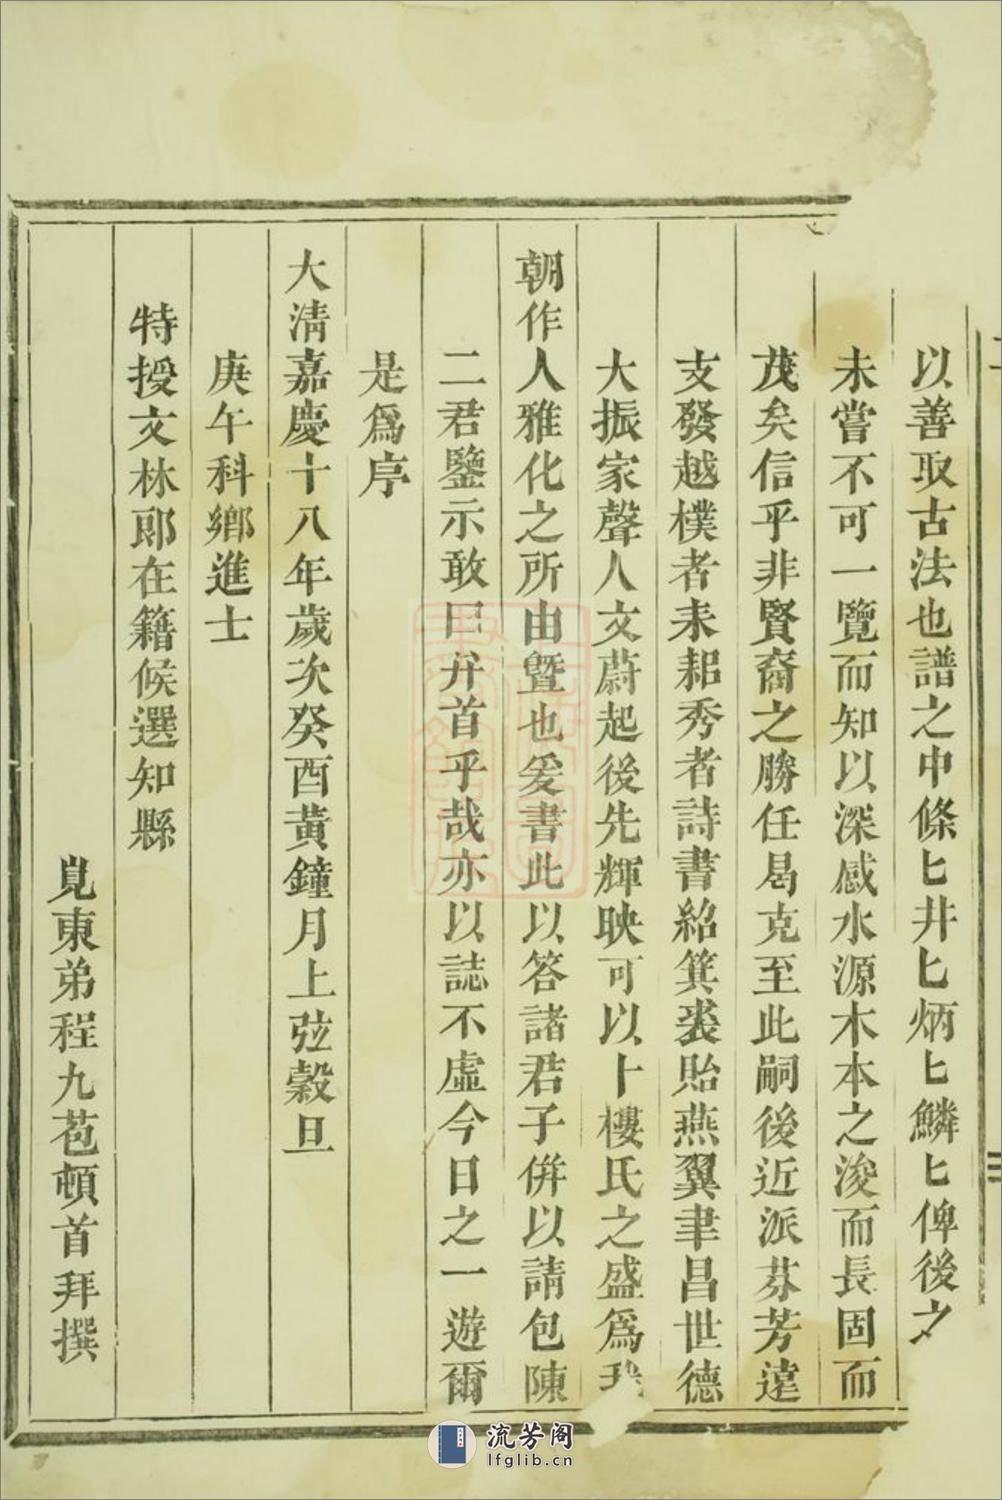 以善取古法也譜之中條匕井匕炳匕鱗匕俾後之
未嘗不可一覽而知以深感水源木本之浚而長固而
茂矣信乎非賢裔之勝任曷克至此嗣後近派芬芳遠
支發越樸者耒耜秀者詩書紹箕裘貽燕翼聿昌世德
大振家聲人文蔚起後先輝映可以卜樓氏之盛爲我
朝作人雅化之所由曁也爰書此以答諸君子併以請包陳
二君鑒示敢曰弁首乎哉亦以誌不虛今日之一遊爾
是爲序
大淸嘉慶十八年歲次癸酉黃鐘月上弦穀旦
庚午科鄉進士
特授文林郎在籍候選知縣
見東弟程九苞頓首拜撰
流芳阁
lfglib.cn